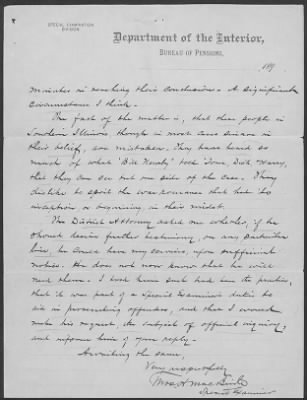 SPECIAL EXAMINATION
DIVISION.
Department of the Interior,
BUREAU OF PENSIONS,
189
minutes in reaching their conclusions. A significant
circumstance I think.
The fact of the matter is, that these people in
Southern Illinois, though in most cases sincere in
their belief, are mistaken. They have heard so
much of what "Bill Newby" told Tom, Dick & Harry,
that they can see but one side of the case. They
dislike to spoil the war romance that had its
inception or beginning in their midst.
The District Attorney asked me whether, if he
should desire further testimony, on any particular
line, he could have my services, upon sufficient
notice. He does not now know that he will
need them. I told him such had been the practice,
that it was part of a Special Examiner's duties to
aid in prosecuting offenders, and that I would
make his request, the subject of official inquiry,
and inform him of your reply.
Awaiting the same,
Very respectfully
Special Examiner